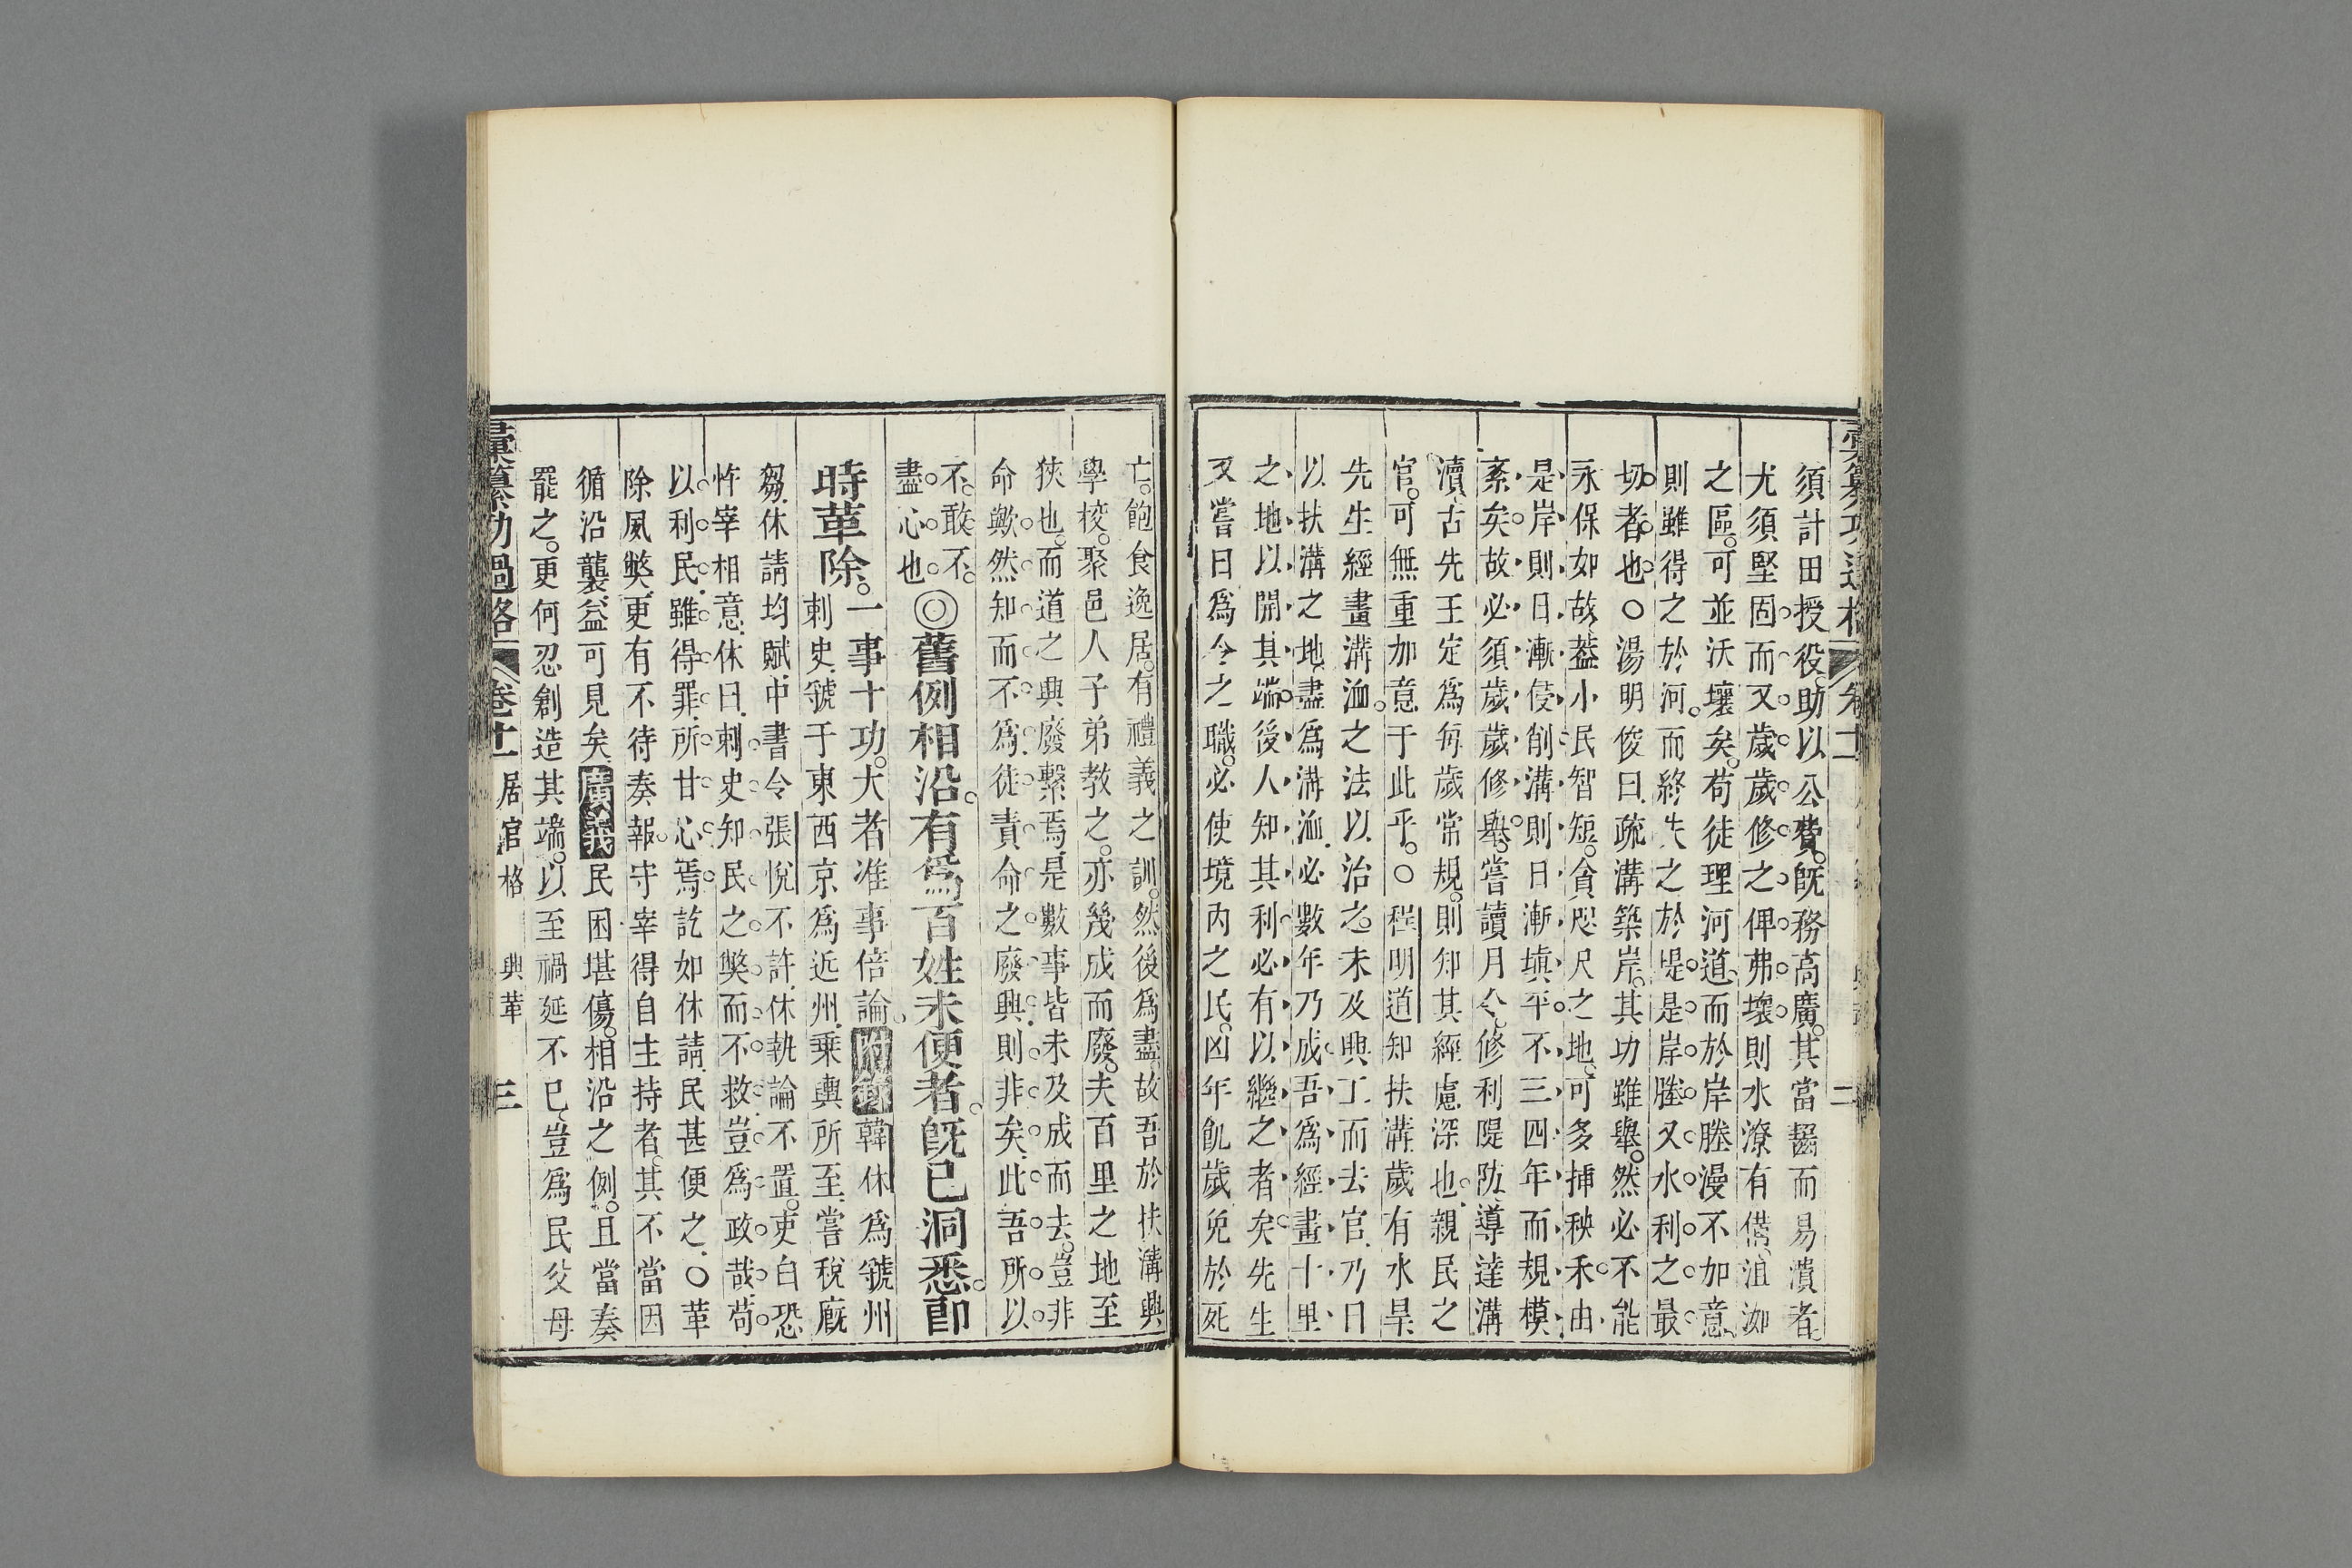 須計田授役助以公費。旣務高廣。其當齧而易潰者
尤須堅固而又歲歲修之俾弗壞則水潦有備沮洳
之區。可並沃壤矣。苟徒理河道。而於岸塍漫不加意
則雖得之於河。而終失之於堤是岸塍又水利之最
切者也。○湯明俊曰疏溝築岸。其功雖舉。然必不能
永保如故蓋小民智短。貪咫尺之地。可多揷秧禾由
是岸則日漸侵削溝則日漸塡平。不三四年而規模
紊矣。故必須歲歲修舉。嘗讀月令。修利隄防導達溝
瀆古先王定爲每歲常規。則知其經慮深也。親民之
官。可無重加意于此乎。○程明道知扶溝歲有水旱
先生經畫溝洫之法以治之。未及興工而去官乃曰
以扶溝之地盡爲溝洫必數年乃成吾爲經畫十里
之地以開其端。後人知其利必有以繼之者矣先生
又嘗曰爲令之職。必使境內之民。凶年飢歲免於死
亡。飽食逸居。有禮義之訓。然後爲盡。故吾於扶溝興
學校。聚邑人子弟教之。亦幾成而廢。夫百里之地至
狹也。而道之興廢繫焉。是數事皆未及成而去。豈非
命歟然知而不爲徒責命之廢興則非矣此吾所以
不敢不
盡心也◎舊例相沿。有爲百姓未便者。旣已洞悉。卽
時革除。一事十功。大者准事倍論。附錄韓休爲虢州
刺史虢于東西京爲近州乗輿所至嘗稅廐
芻休請均賦中書令張悅不許休執論不置。吏白恐
忤宰相意休曰刺史知民之獘而不救豈爲政哉苟
以利民雖得罪所甘心焉訖如休請民甚便之○革
除夙獘更有不待奏報。守宰得自主持者其不當因
循沿襲益可見矣廣義民困堪傷。相沿之例。且當奏
罷之。更何忍創造其端。以至禍延不已豈爲民父母
彚纂功過格 卷十二 居官格 興革 三